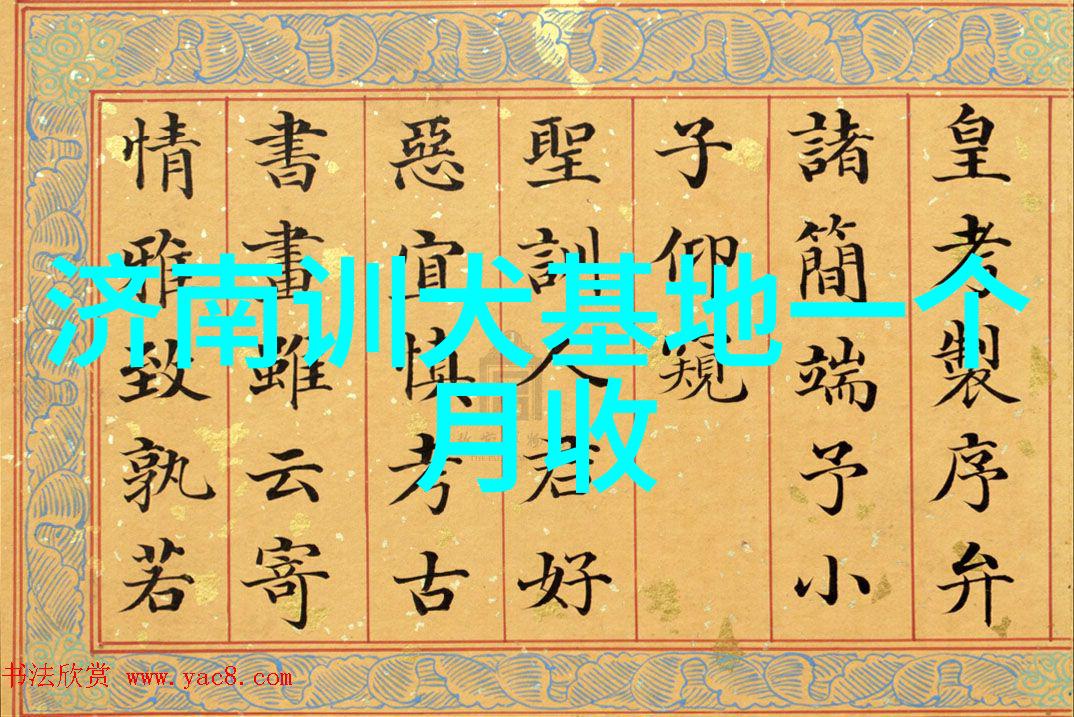 皇考製序弁
諸簡端予小
子仰窺
聖訓人君好
惡宜慎考古
書畫雖云寄
情雅致孰若
济南训犬基地一个
月收
书法欣赏 www.yac8.com